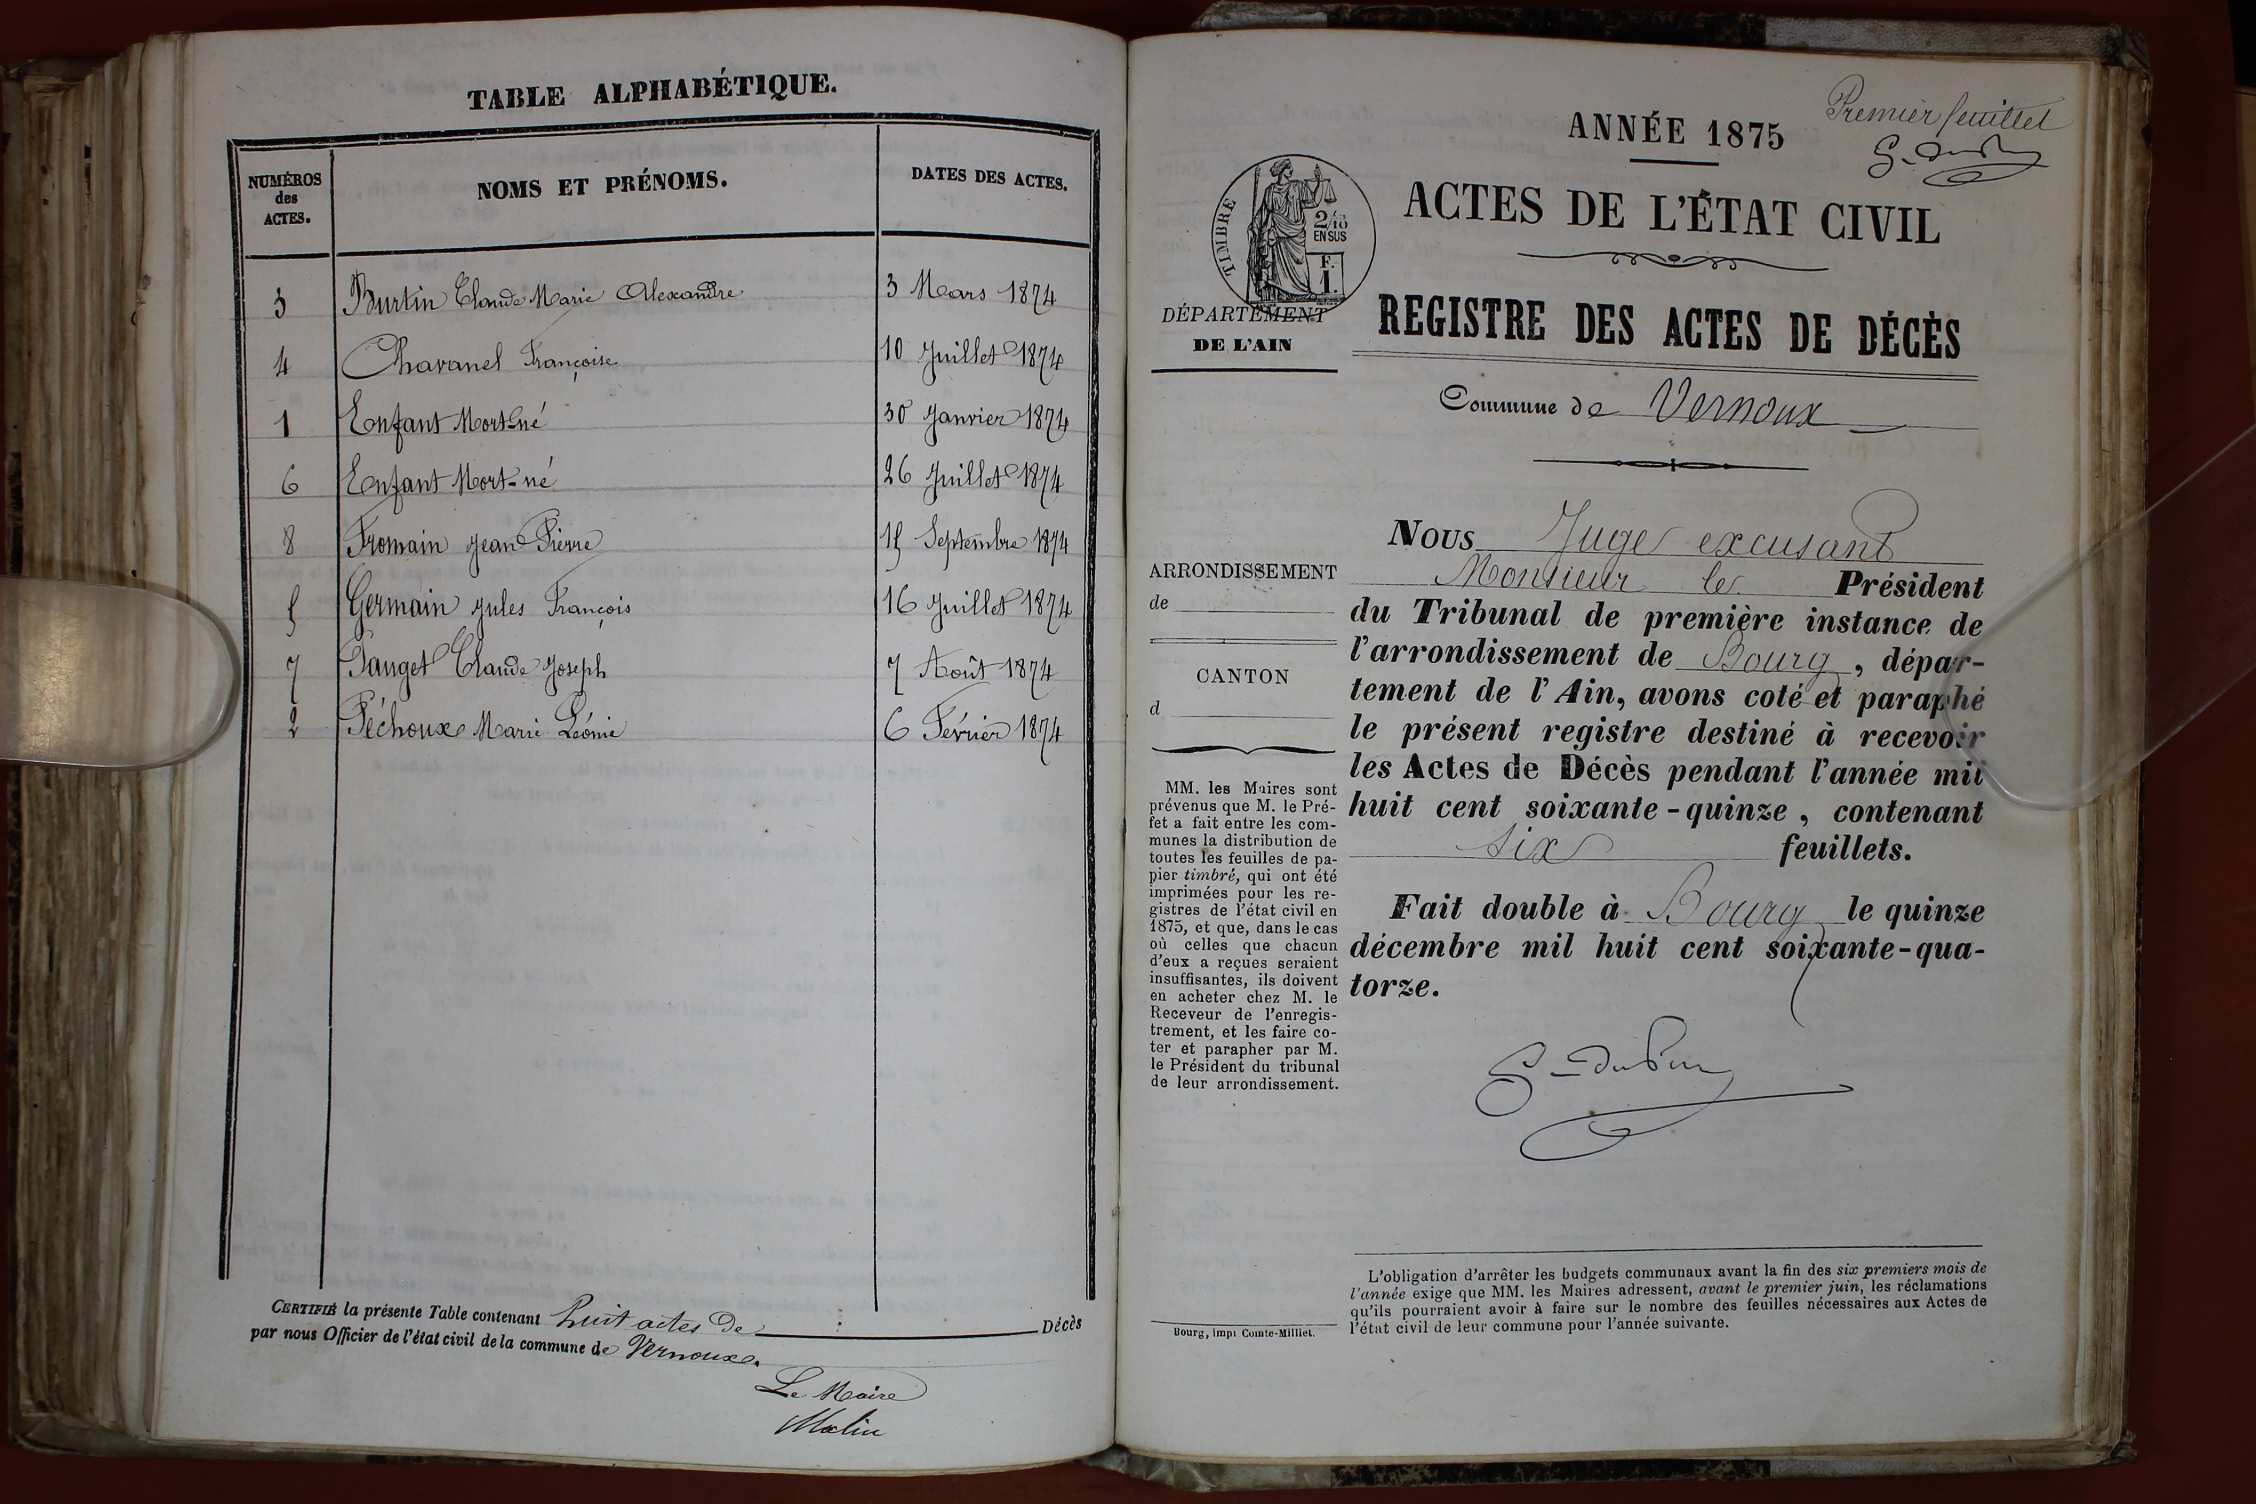 TABLE ALPHABÉTIQUE.
NUMÉROS
des
ACTES.
NOMS ET PRÉNOMS.
DATES DES ACTES.
3 Burtin Claude Marie Alexandre 3 Mars 1874
4 Chavanel Françoise 10 Juillet 1874
1 Enfant Mort-né 30 Janvier 1874
6 Enfant Mort-né 26 Juillet 1874
8 Fromain Jean Pierre 15 Septembre 1874
5 Germain Jules François 16 Juillet 1874
7 Panget Claude Joseph 7 Août 1874
2 Péchoux Marie Léonie 6 Février 1874
CERTIFIÉ la présente Table contenant huit actes de Décès
par nous Officier de l'état civil de la commune de Vernoux.
Le Maire
Premier feuillet
ANNÉE 1875
ACTES DE L'ÉTAT CIVIL
TIMBRE
2/10
EN SUS
F.
1.
DÉPARTEMENT
DE L'AIN
REGISTRE DES ACTES DE DÉCÈS
Commune de Vernoux
ARRONDISSEMENT
de
CANTON
d
MM. les Maires sont
prévenus que M. le Pré-
fet a fait entre les com-
munes la distribution de
toutes les feuilles de pa-
pier timbré, qui ont été
imprimées pour les re-
gistres de l'état civil en
1875, et que, dans le cas
où celles que chacun
d'eux a reçues seraient
insuffisantes, ils doivent
en acheter chez M. le
Receveur de l'enregis-
trement, et les faire co-
ter et parapher par M.
le Président du tribunal
de leur arrondissement.
Bourg, impr Comte-Milliet.
NOUS Juge excusant
Monsieur le Président
du Tribunal de première instance de
l'arrondissement de Bourg, dépar-
tement de l'Ain, avons coté et paraphé
le présent registre destiné à recevoir
les Actes de Décès pendant l'année mil
huit cent soixante-quinze, contenant
six feuillets.
Fait double à Bourg le quinze
décembre mil huit cent soixante-qua-
torze.
L'obligation d'arrêter les budgets communaux avant la fin des six premiers mois de
l'année exige que MM. les Maires adressent, avant le premier juin, les réclamations
qu'ils pourraient avoir à faire sur le nombre des feuilles nécessaires aux Actes de
l'état civil de leur commune pour l'année suivante.